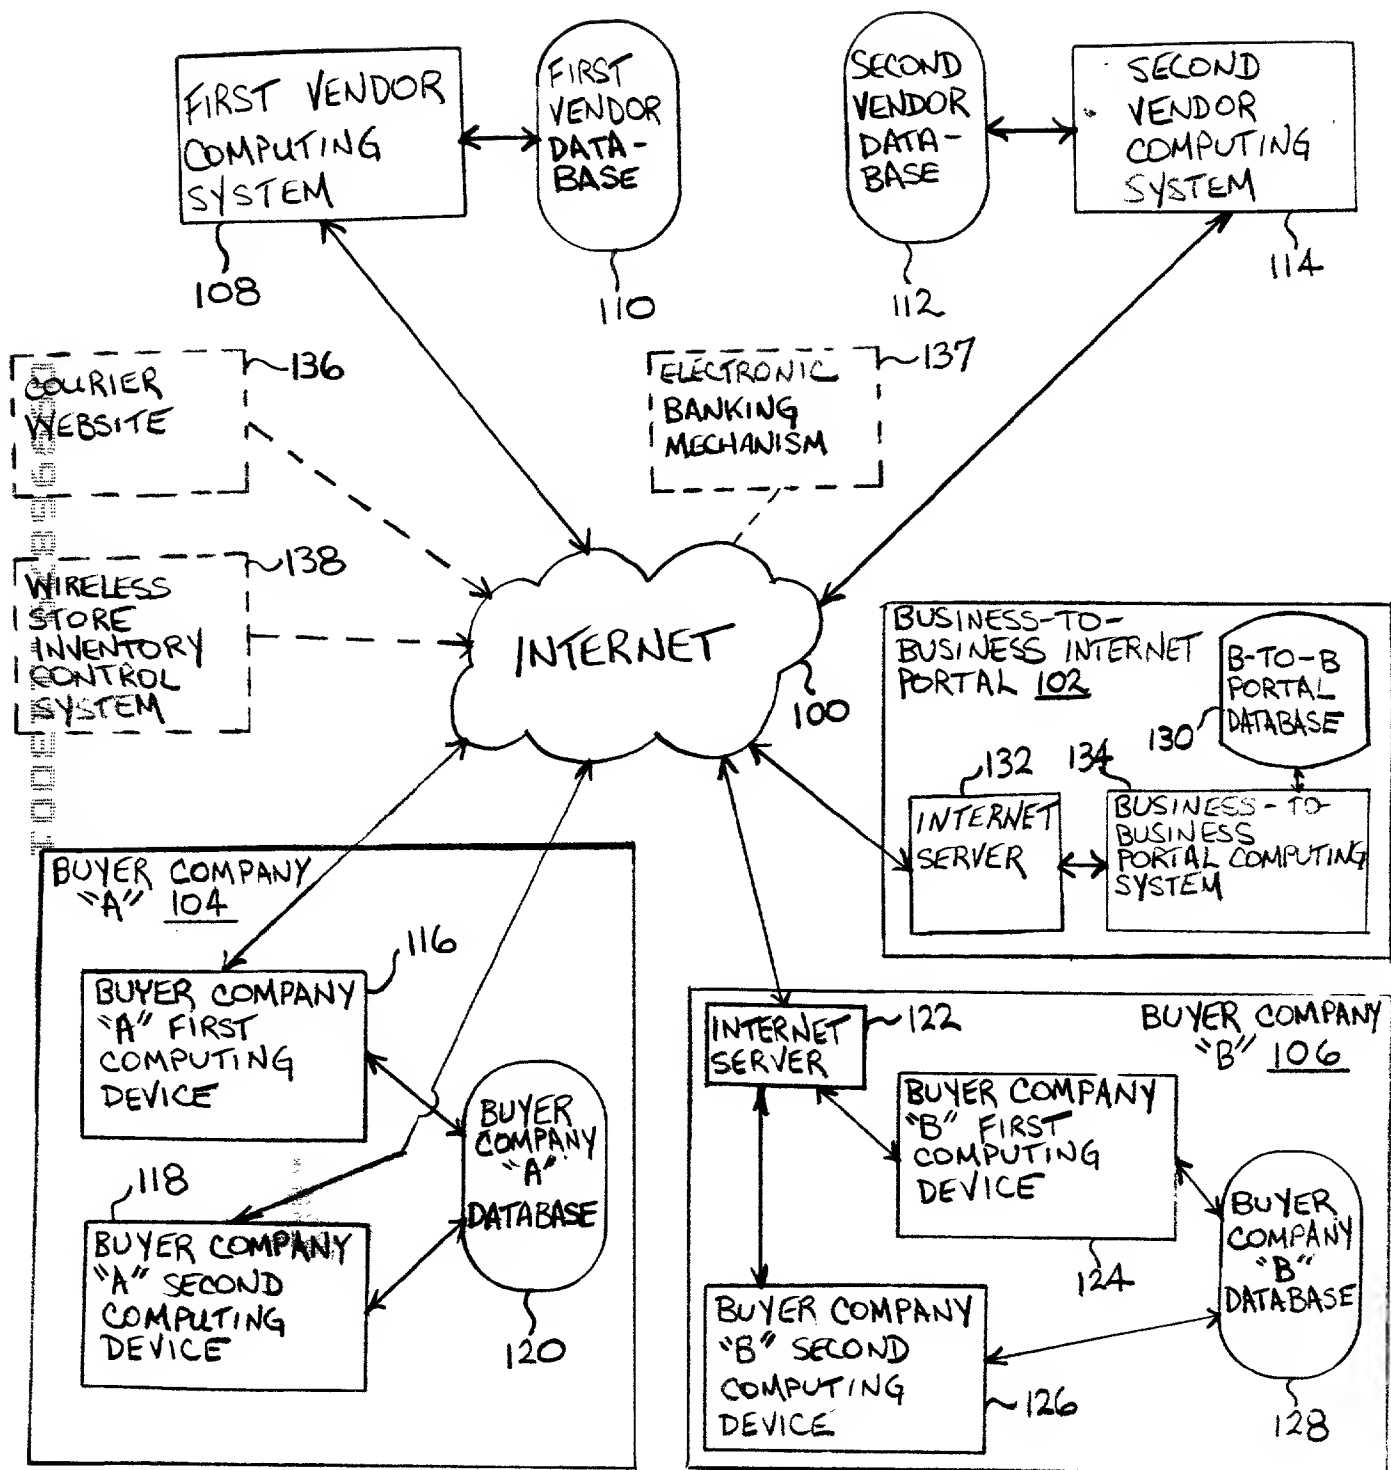 FIRST VENDOR
COMPUTING
SYSTEM
108
FIRST
VENDOR
DATA-
BASE
110
SECOND
VENDOR
DATA-
BASE
112
SECOND
VENDOR
COMPUTING
SYSTEM
114
COURIER
WEBSITE
136
ELECTRONIC
BANKING
MECHANISM
137
WIRELESS
STORE
INVENTORY
CONTROL
SYSTEM
138
INTERNET
100
BUSINESS-TO-
BUSINESS INTERNET
PORTAL 102
B-TO-B
PORTAL
DATABASE
130
132
134
INTERNET
SERVER
BUSINESS-TO-
BUSINESS
PORTAL COMPUTING
SYSTEM
BUYER COMPANY
"A" 104
116
BUYER COMPANY
"A" FIRST
COMPUTING
DEVICE
BUYER
COMPANY
"A"
DATABASE
120
118
BUYER COMPANY
"A" SECOND
COMPUTING
DEVICE
INTERNET
SERVER
122
BUYER COMPANY
"B" 106
BUYER COMPANY
"B" FIRST
COMPUTING
DEVICE
124
BUYER
COMPANY
"B"
DATABASE
128
BUYER COMPANY
"B" SECOND
COMPUTING
DEVICE
126